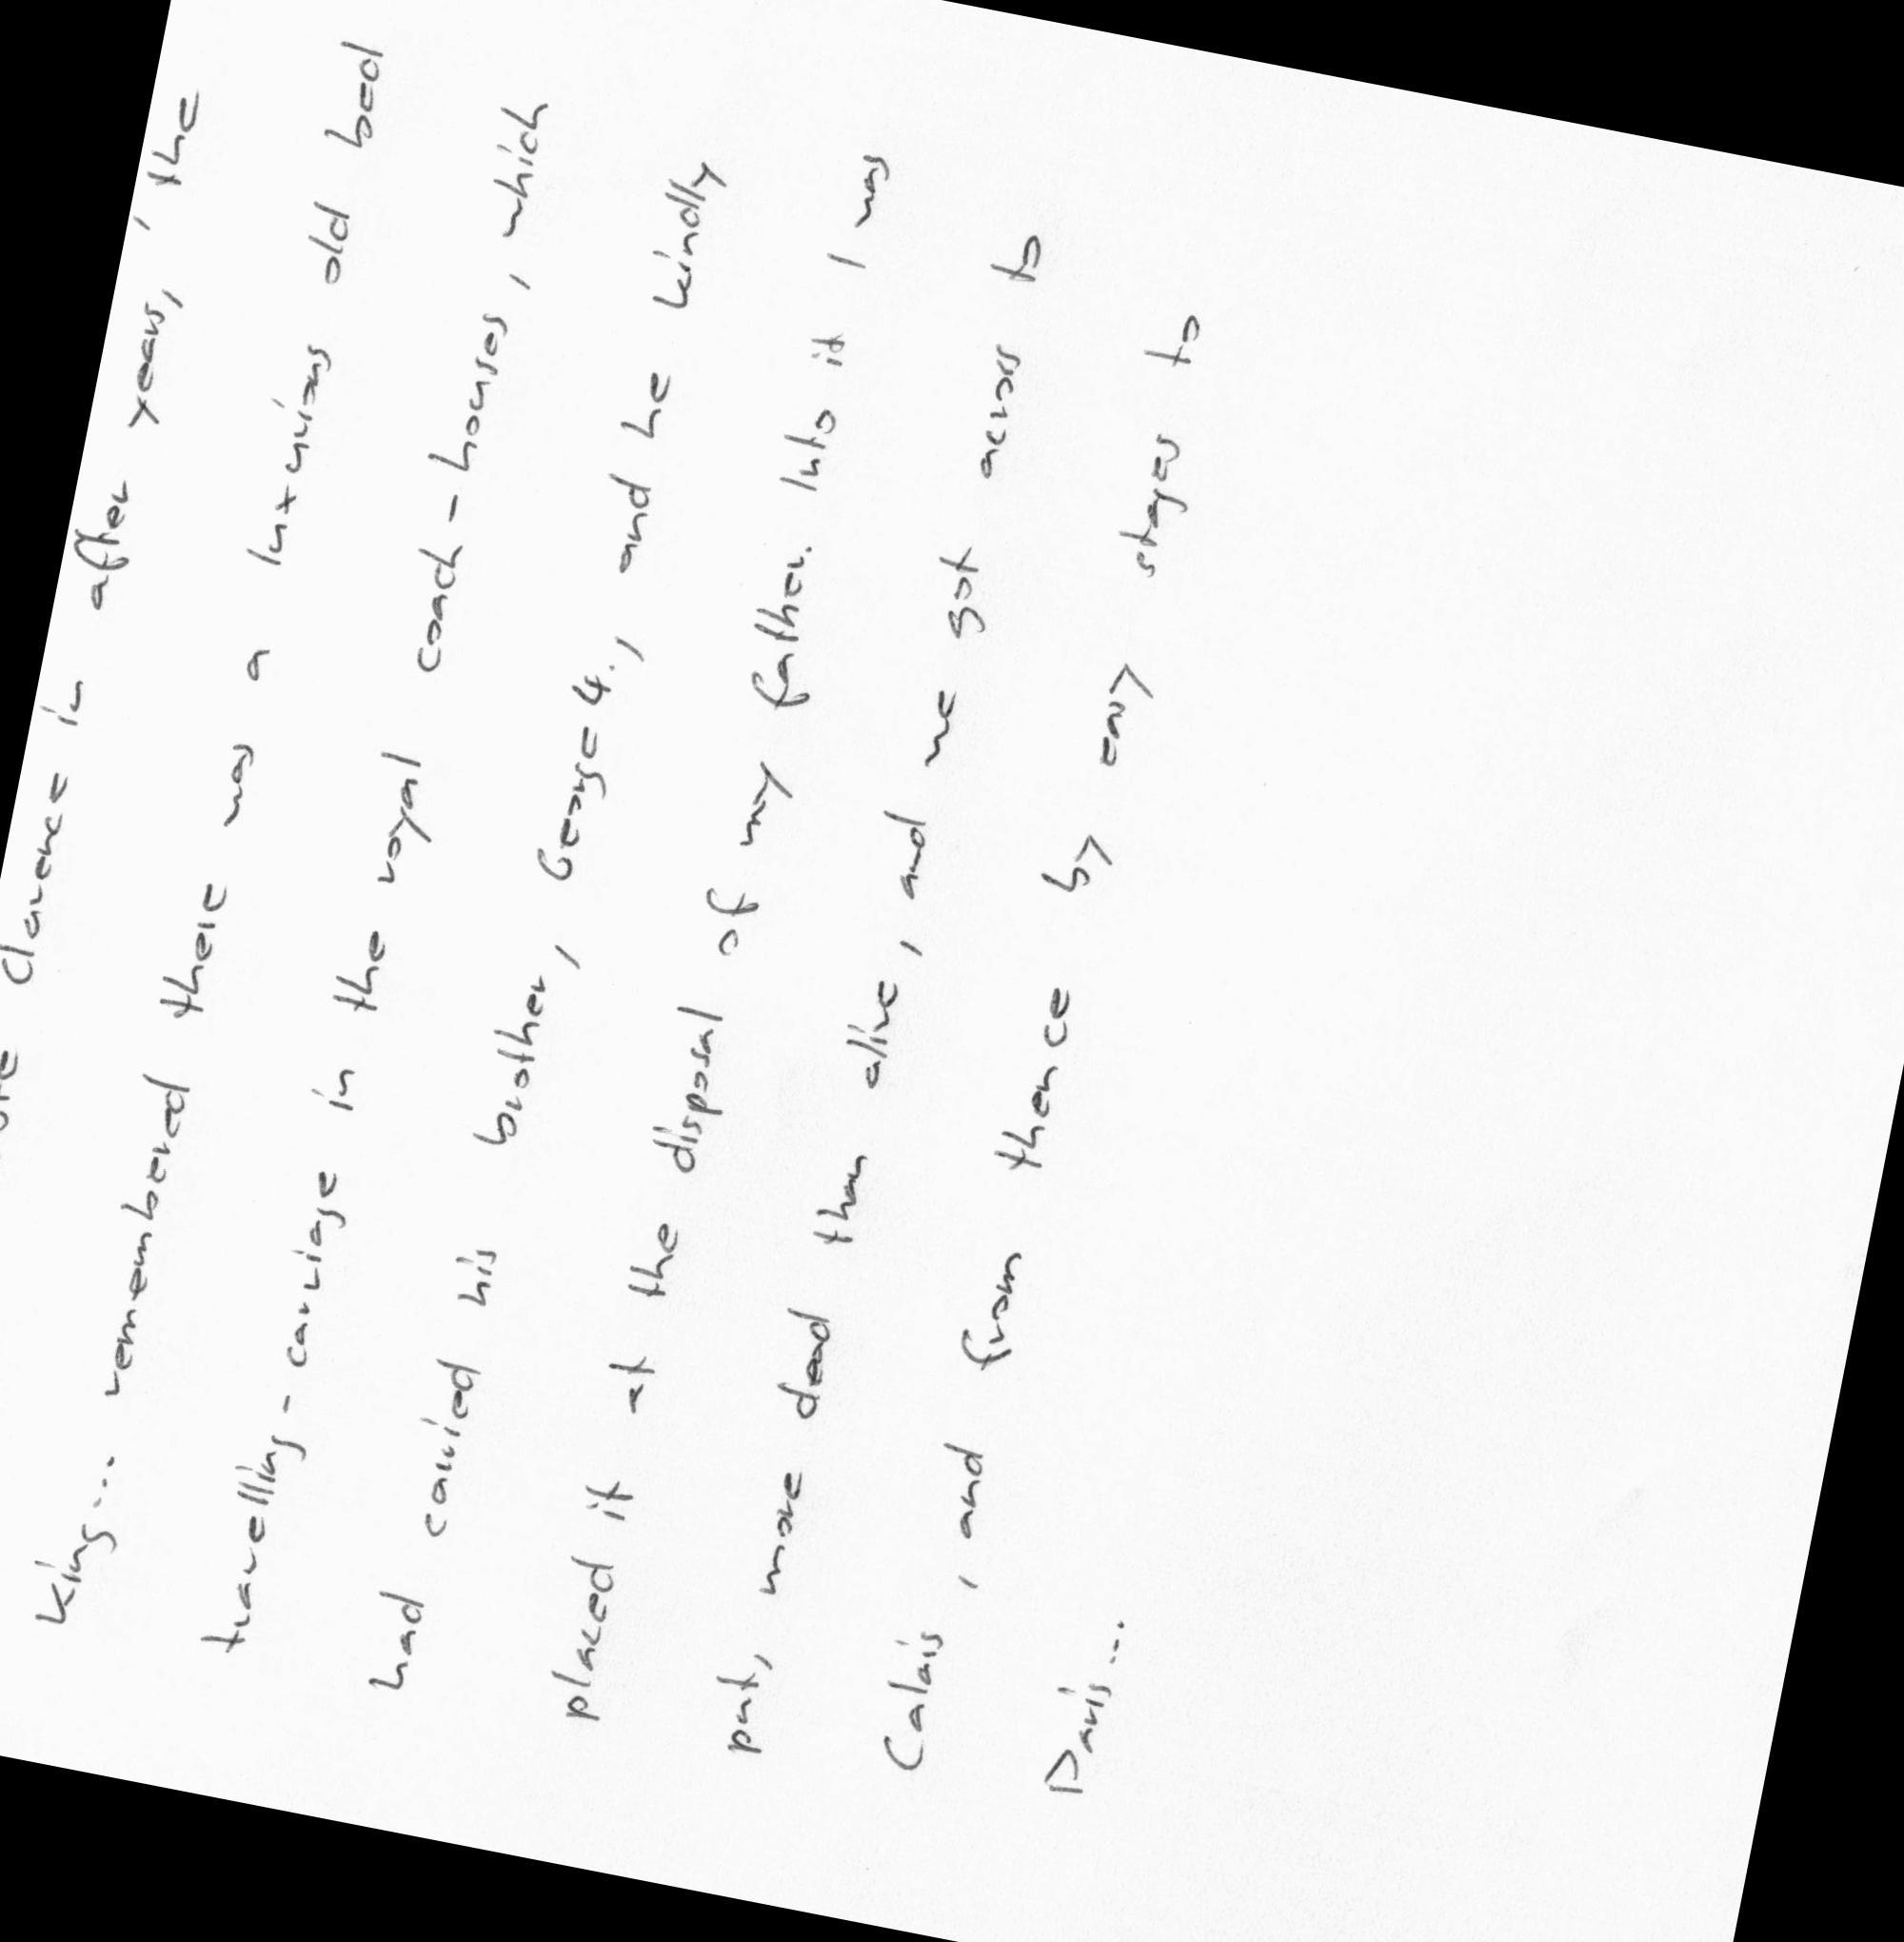 Clarence in after years, ' the
King... remembered there was a luxurious old bed
travelling - carriage in the royal coach - houses, which
had carried his brother, George 4., and he kindly
placed it at the disposal of my father. Into it I was
put, more dead than alive, and we got across to
Calais, and from thence by easy stages to
Paris...